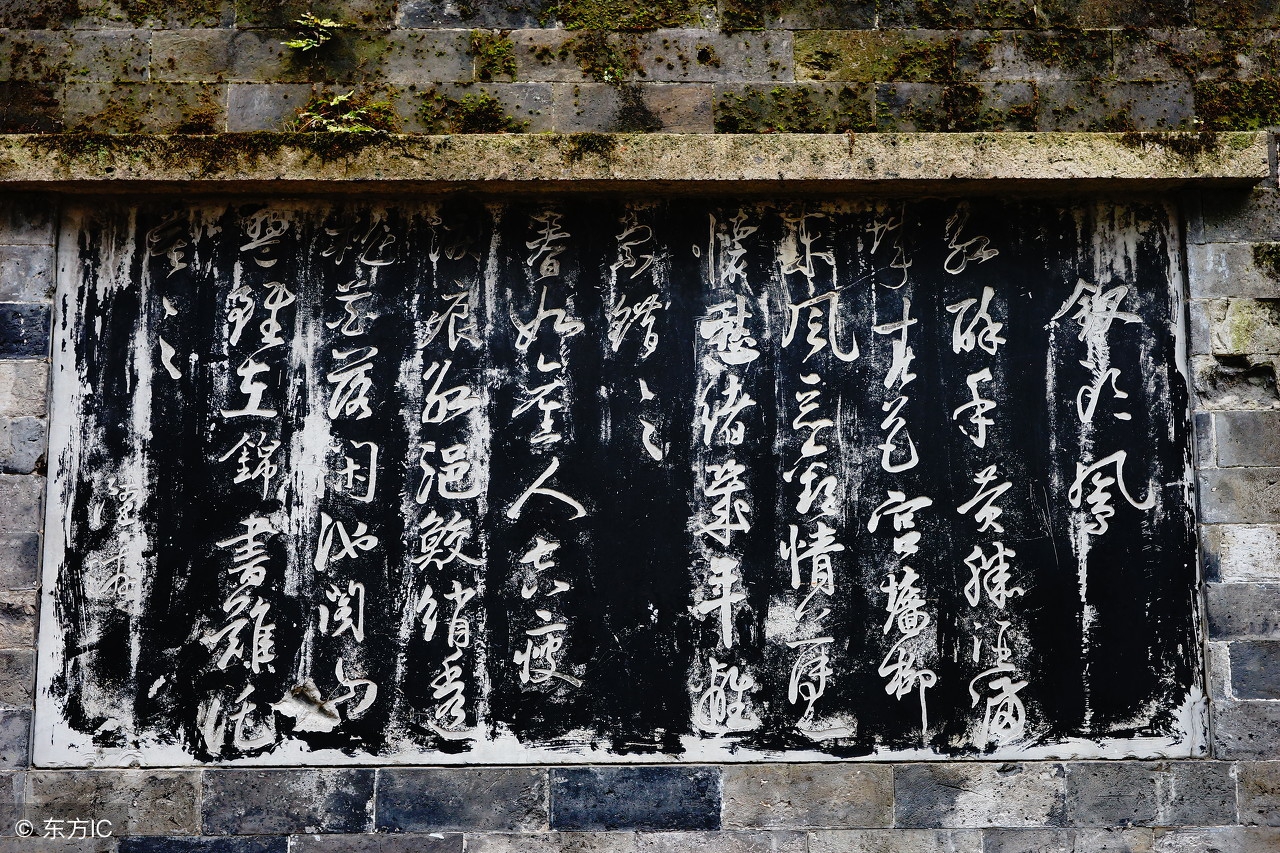 釵頭鳳
紅酥手黃縢酒滿
城春色宮牆柳
東風惡歡情薄一
懷愁緒幾年離
索錯〻〻
春如舊人空瘦
淚痕紅浥鮫綃透
桃花落閑池閣山
盟雖在錦書難託
莫〻〻
陸游
© 东方IC